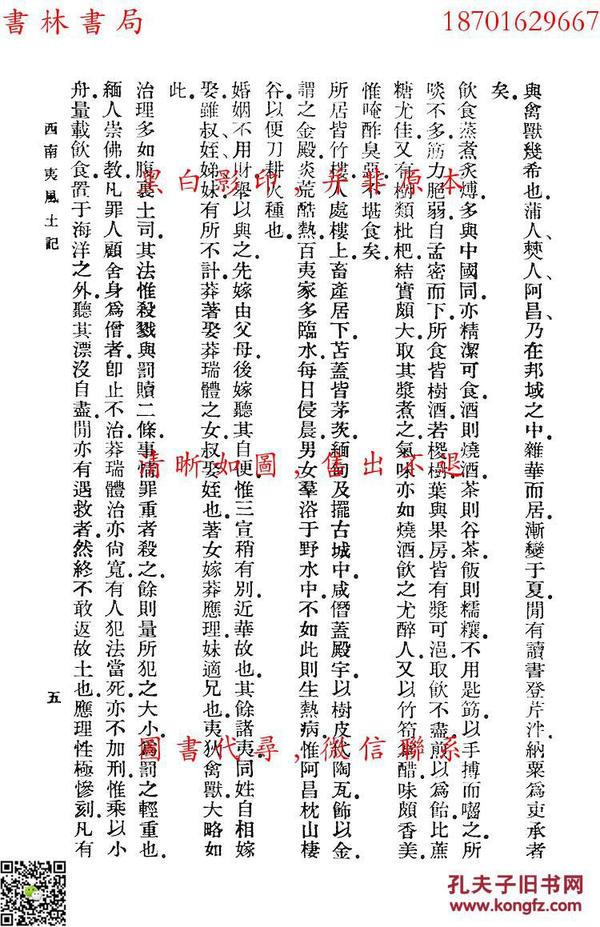 書林書局
18701629667
與禽獸幾希也.蒲人、僰人、阿昌、乃在邦域之中.雜華而居.漸變于夏.閒有讀書登芹泮納粟爲吏承者
矣.
飲食蒸煮炙煿.多與中國同.亦精潔可食.酒則燒酒.茶則谷茶.飯則糯糬.不用匙筯.以手搏而囓之.所
啖不多.筋力脆弱.自孟密而下.所食皆樹酒.若椶樹葉與果房.皆有漿可浥.取飲不盡.煎以爲飴.比蔗
糖尤佳.又有樹類枇杷.結實頗大.取其漿煮之.氣味亦如燒酒.飲之尤醉人.又以竹筍爲醋.味頗香美.
惟唵酢臭惡不堪食矣.
所居皆竹樓.人處樓上.畜產居下.苫蓋皆茅茨.緬甸及擺古城中.咸僭蓋殿宇.以樹皮代陶瓦.飾以金.
謂之金殿.炎荒酷熱.百夷家多臨水.每日侵晨.男女羣浴于野水中.不如此則生熱病.惟阿昌枕山棲
谷.以便刀耕火種也.
婚姻不用財.舉以與之.先嫁由父母.後嫁聽其自便.惟三宣稍有別.近華故也.其餘諸夷.同姓自相嫁
娶.雖叔、姪、娣、妹.有所不計.莽著娶莽瑞體之女.叔娶姪也.著女嫁莽應理.妹適兄也.夷狄禽獸大略如
此.
治理多如腹裏土司.其法惟殺戮與罰贖二條.事情罪重者殺之.餘則量所犯之大小.爲罰之輕重也.
緬人崇佛教.凡罪人顧舍身爲僧者.卽止不治.莽瑞體治亦尙寬.有人犯法當死.亦不加刑.惟乘以小
舟.量載飲食.置于海洋之外.聽其漂沒自盡.閒亦有遇救者.然終不敢返故土也.應理性極慘刻.凡有
西南夷風土記
五
黑白影印,并非原本
清晰如圖,售出不退
圖書代尋,微信聯系
孔夫子旧书网
www.kongfz.com